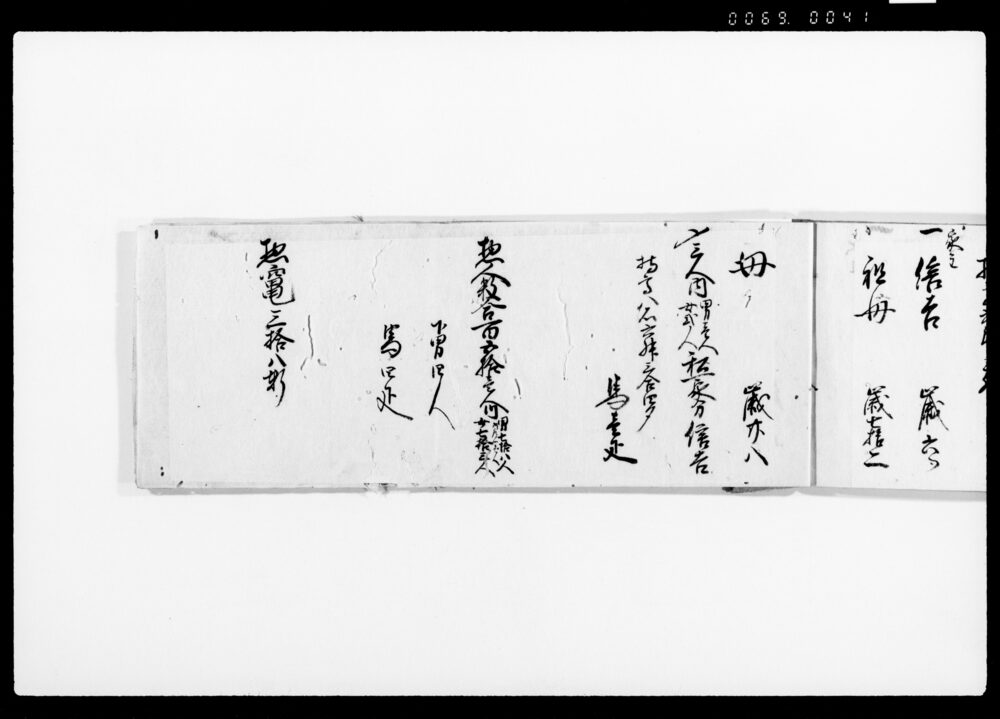 0069. 0041
一 信吉 歳六ツ
祖母 歳七拾二
母 歳廿八
〆三人内 男壱人 女弐人 信吉
持高八石六升三合四夕
馬壱疋
惣人数合百五拾壱人内 男七拾八人 女七拾三人
下男四人
馬四疋
惣竈三拾八軒